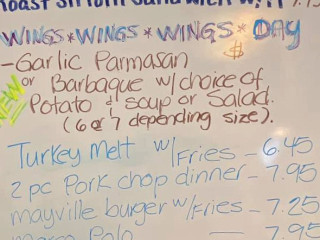 Roast Sirloin Sandwich w/
WINGS*WINGS*WINGS* DAY
-Garlic Parmasan $
NEW
or Barbaque w/choice of
Potato & Soup or Salad.
(6 or 7 depending size).
Turkey Melt w/Fries - 6.45
2 pc Pork chop dinner - 7.95
mayville burger w/Fries - 7.25
Marco Polo — 7.95